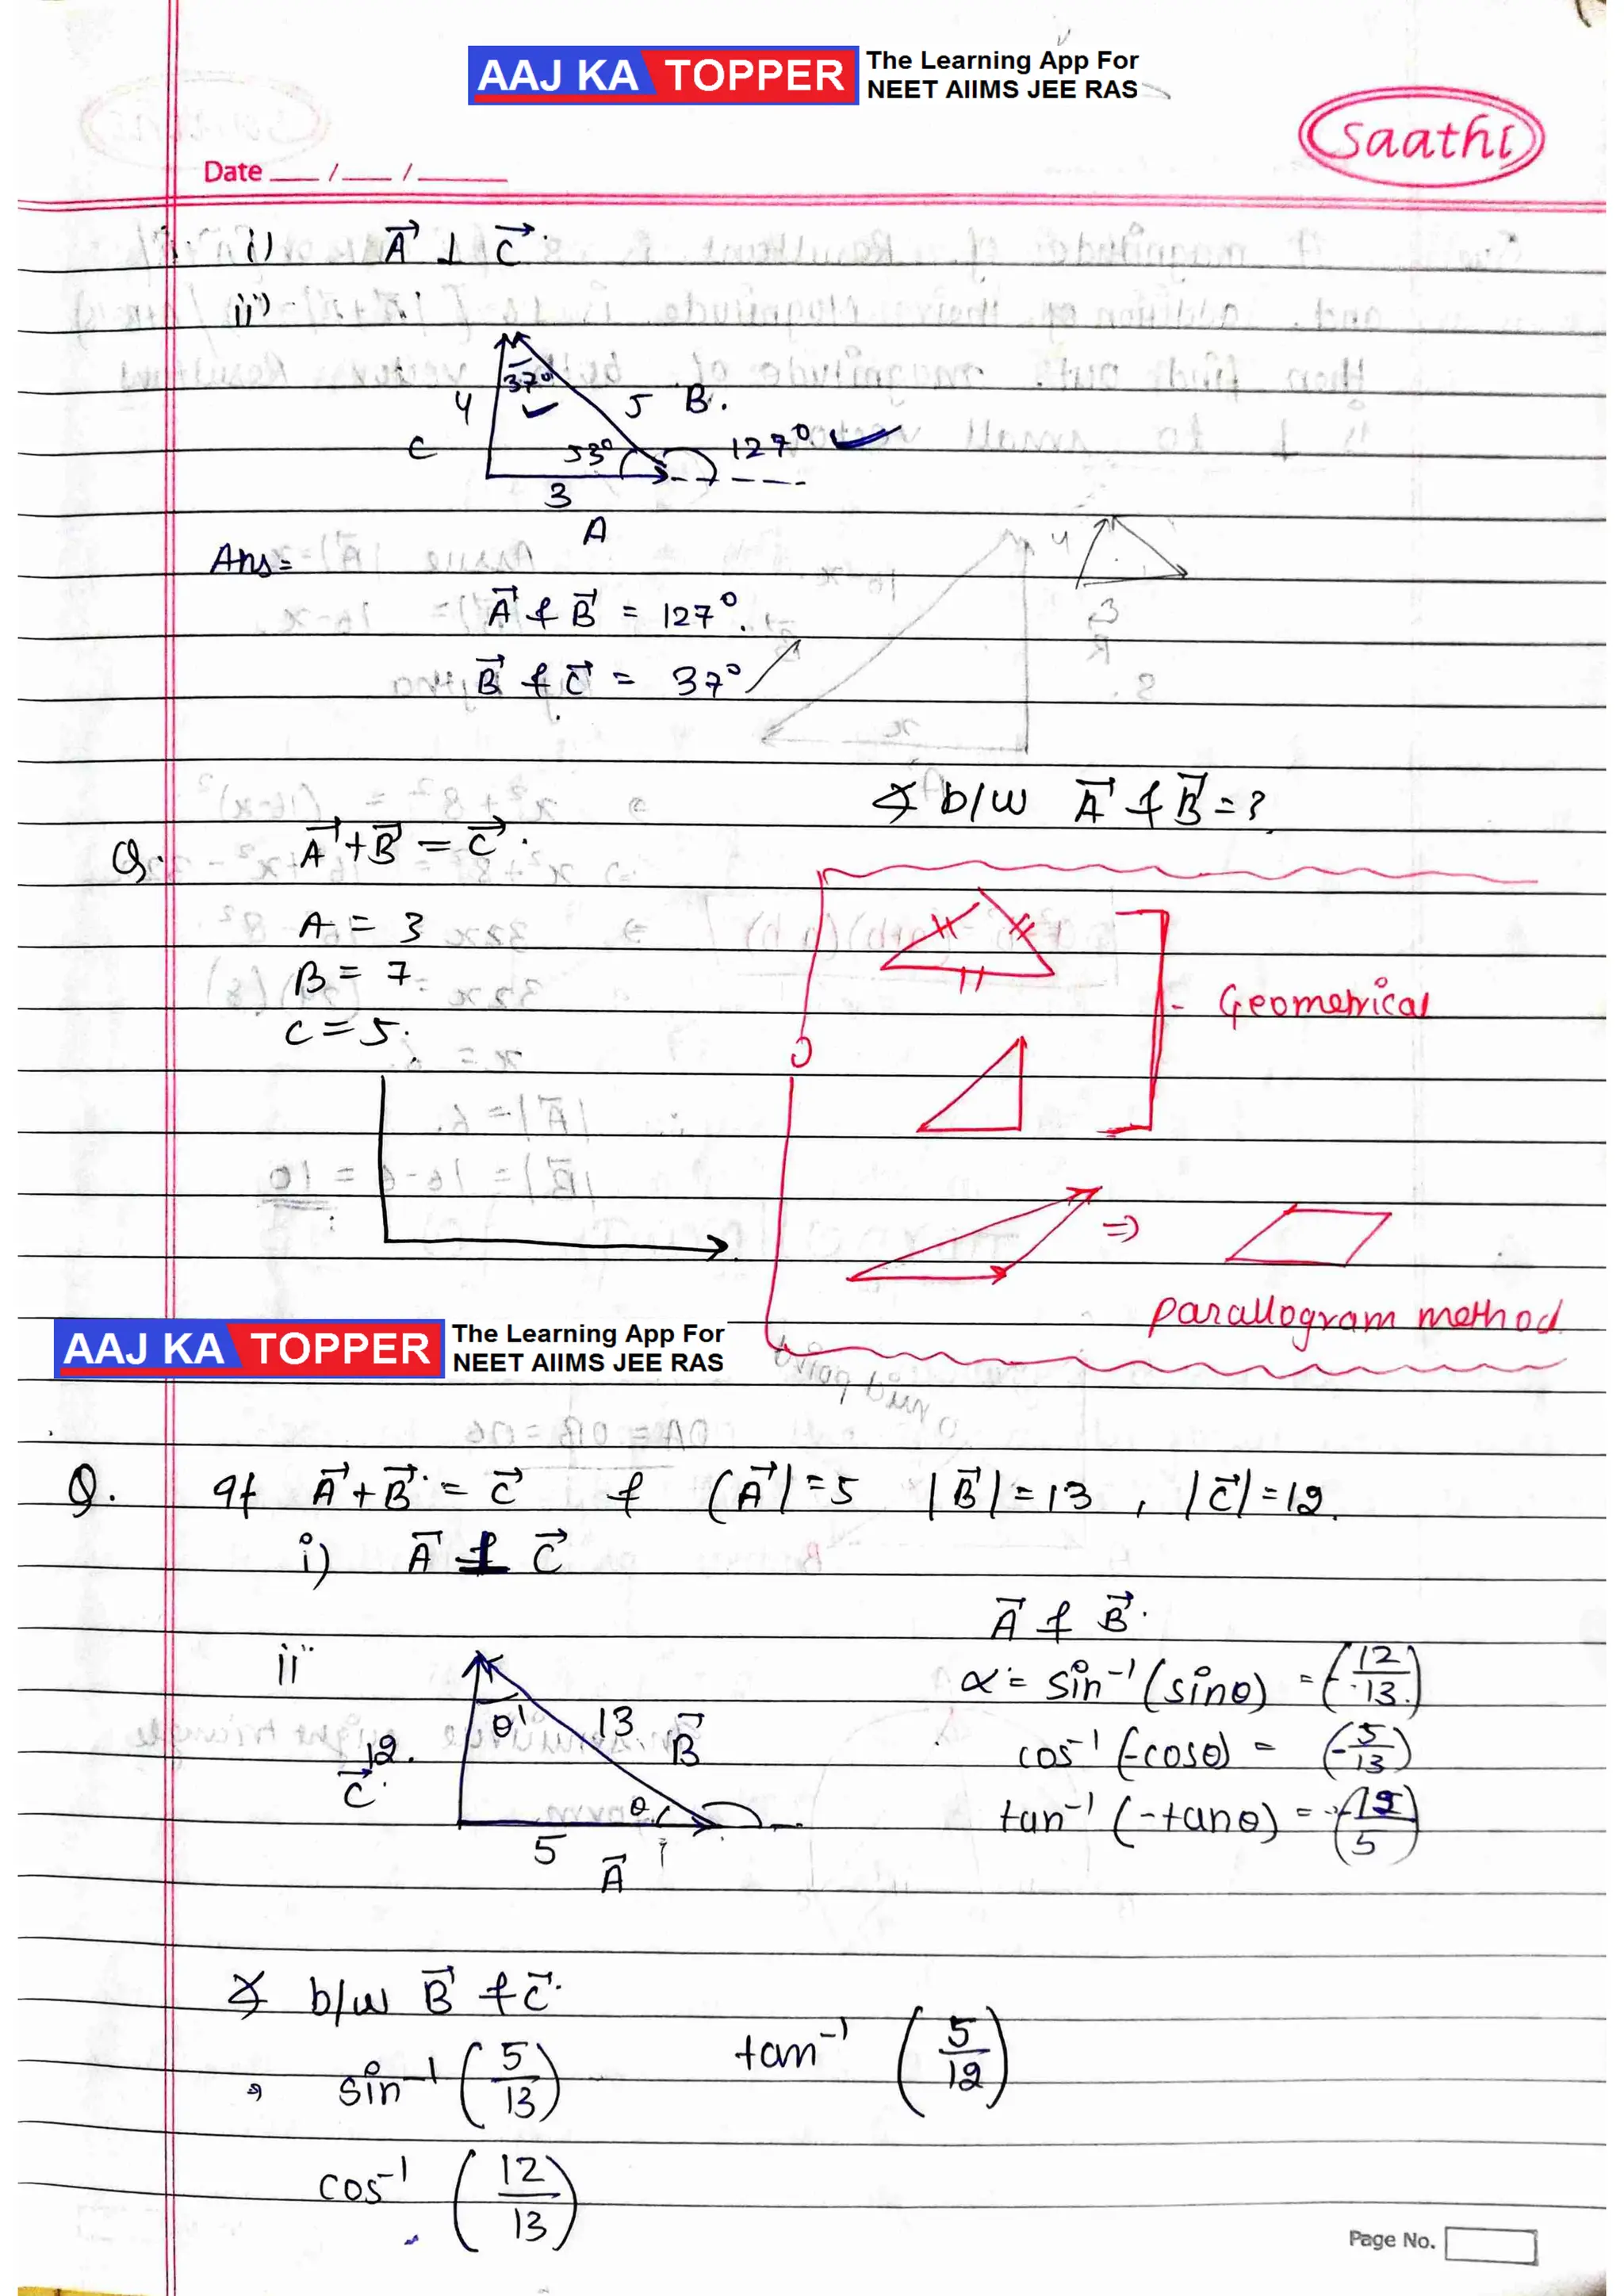 AAJ KA TOPPER The Learning App For
NEET AIIMS JEE RAS
Saathi
Date ___ / ___ / _____
i) A⃗ ⊥ C⃗
ii)
37°
4 5 B.
C 53° 127°
3
A
Ans =
A⃗ & B⃗ = 127°.
B⃗ & C⃗ = 37°
∡ b/w A⃗ & B⃗ = ?
Q. A⃗ + B⃗ = C⃗.
A = 3
B = 7
C = 5.
Geometrical
⇒
Parallogram method
AAJ KA TOPPER The Learning App For
NEET AIIMS JEE RAS
Q. If A⃗ + B⃗ = C⃗ & |A⃗| = 5 |B⃗| = 13 , |C⃗| = 12.
i) A⃗ ⊥ C⃗
A⃗ & B⃗.
ii
α = sin⁻¹ (sinθ) = (12/13)
θ' 13 B⃗
12. C⃗
cos⁻¹ (-cosθ) = (-5/13)
θ
tan⁻¹ (-tanθ) = (-12/5)
5 A⃗
∡ b/w B⃗ & C⃗.
sin⁻¹ (5/13) tan⁻¹ (5/12)
cos⁻¹ (12/13)
Page No.